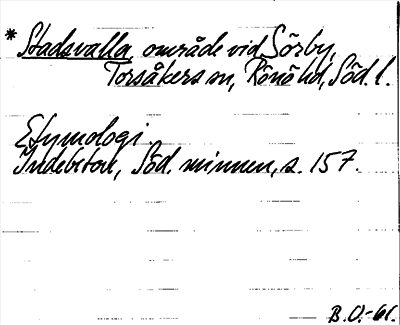 * Stadsvalla, område vid Sörby,
Torsåkers sn, Rönö hd, Söd. l.
Etymologi.
Indebetou, Söd. minnen, s. 157.
B.O.-61.